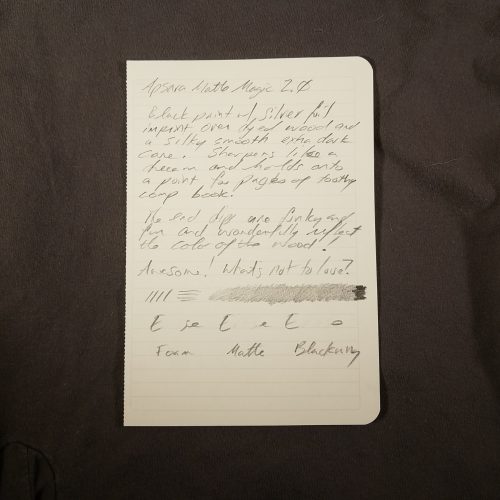 Apsara Matte Magic 2.0
Black paint w/ silver foil
imprint over dyed wood and
a silky smooth extra dark
core. Sharpens like a
dream and holds onto
a point for pages of toothy
comp book.
The end dips are funky and
fun and wonderfully reflect
the color of the wood!
Awesome. What's not to love?
E se E e E e
Foam Matte Blackwing